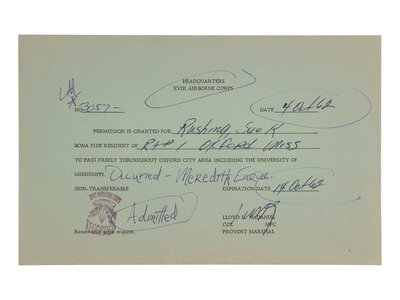 HEADQUARTERS
XVIII AIRBORNE CORPS
NO. 3057-
DATE 4 Oct 62
PERMISSION IS GRANTED FOR Rushing, Sue K
BONA FIDE RESIDENT OF Rt# 1 OXFORD MISS
TO PASS FREELY THROUGHOUT OXFORD CITY AREA INCLUDING THE UNIVERSITY OF
MISSISSIPPI. Occupied - Meredith Enroll.
NON-TRANSFERABLE EXPIRATION DATE 14 Oct 62
Admitted
LLOYD E. DANIEL
COL MPC
Renewable upon request. PROVOST MARSHAL